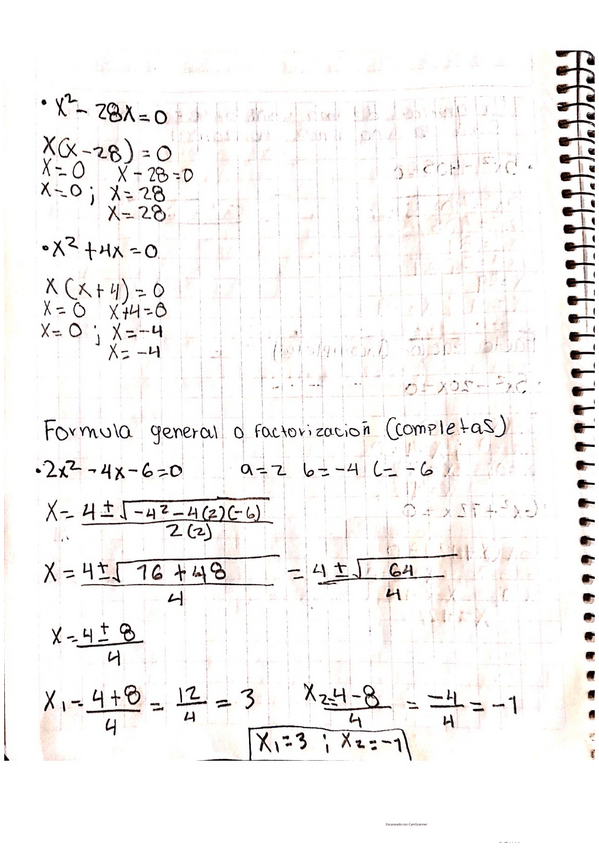 • x² - 28x = 0
x(x - 28) = 0
x = 0 x - 28 = 0
x = 0 ; x = 28
x = 28
• x² + 4x = 0
x(x + 4) = 0
x = 0 x + 4 = 0
x = 0 ; x = -4
x = -4
Formula general o factorización (completas)
• 2x² - 4x - 6 = 0 a = 2 b = -4 c = -6
x = 4 ± √-4² - 4(2)(-6) / 2(2)
x = 4 ± √16 + 48 / 4 = 4 ± √64 / 4
x = 4 ± 8 / 4
x₁ = 4 + 8 / 4 = 12 / 4 = 3 x₂ = 4 - 8 / 4 = -4 / 4 = -1
x₁ = 3 ; x₂ = -1
Escaneado con CamScanner